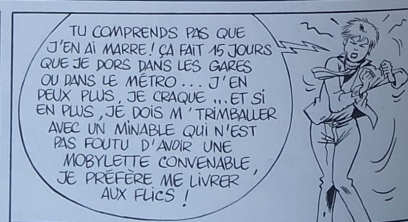 TU COMPRENDS PAS QUE
J'EN AI MARRE! ÇA FAIT 15 JOURS
QUE JE DORS DANS LES GARES
OU DANS LE MÉTRO... J'EN
PEUX PLUS, JE CRAQUE... ET SI
EN PLUS, JE DOIS M'TRIMBALLER
AVEC UN MINABLE QUI N'EST
PAS FOUTU D'AVOIR UNE
MOBYLETTE CONVENABLE,
JE PRÉFÈRE ME LIVRER
AUX FLICS!